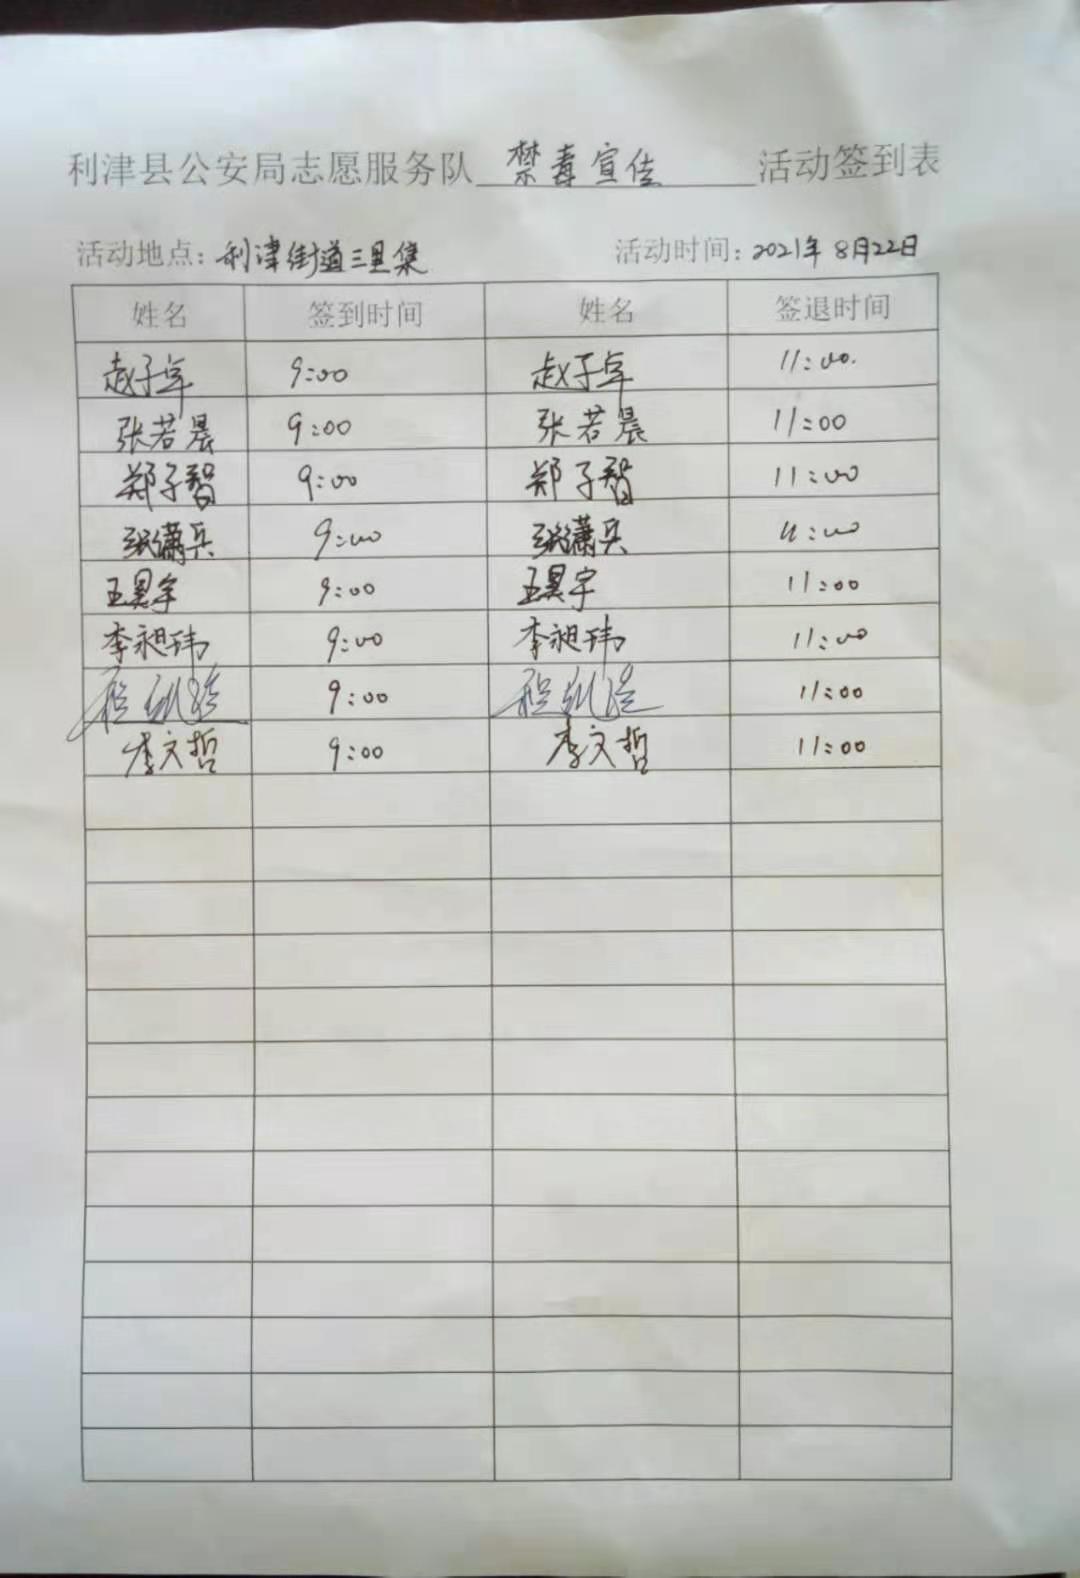 利津县公安局志愿服务队 禁毒宣传 活动签到表
活动地点：利津街道三里集 活动时间：2021年8月22日
姓名 签到时间 姓名 签退时间
赵子卓 9:00 赵子卓 11:00.
张若晨 9:00 张若晨 11:00
郑子智 9:00 郑子智 11:00
张潇兵 9:00 张潇兵 11:00
王昊宇 9:00 王昊宇 11:00
李昶玮 9:00 李昶玮 11:00
9:00 11:00
李文哲 9:00 李文哲 11:00